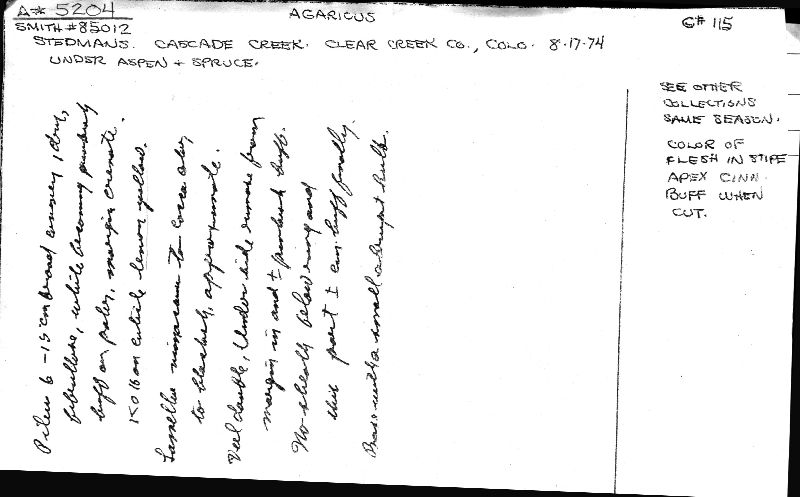 A# 5204
AGARICUS
C# 115
SMITH #85012
STEDMANS. CASCADE CREEK. CLEAR CREEK CO., COLO. 8-17-74
UNDER ASPEN + SPRUCE.
Pileus 6-15 cm broad convex, dry,
fibrillose, white becoming pinkish
buff or paler, margin crenate.
KOH on cuticle lemon yellow.
Lamellae to cocoa color
to blackish, approximate.
Veil double, Under side remote from
margin in and ± pinkish buff.
No sheath below ring and
this part ± cin buff finally.
Base with a small abrupt bulb.
SEE OTHER
COLLECTIONS
SAME SEASON.
COLOR OF
FLESH IN STIPE
APEX CINN.
BUFF WHEN
CUT.